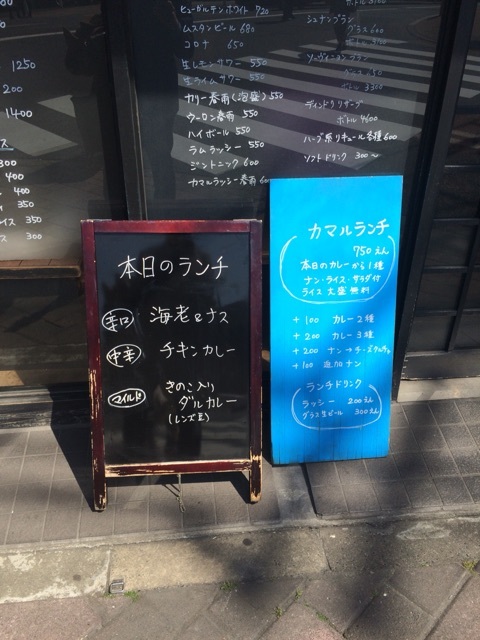 ヒューガルデンホワイト 720
ムスタンビール 680
コロナ 650
生レモンサワー 550
生ライムサワー 550
カリー春雨(泡盛) 550
ウーロン春雨 550
ハイボール 550
ラムラッシー 550
ジントニック 600
カマルラッシー春雨
ボトル 3100
シュナンブラン
グラス 600
ソーヴィニヨンブラン
ボトル 3300
ボトル 4600
ハーブ系リキュール各種 600
ソフトドリンク 300〜
1250
200
1400
300
400
400
350
イス 350
ス 300
本日のランチ
辛口 海老とナス
中辛 チキンカレー
マイルド きのこ入り
ダルカレー
(レンズ豆)
カマルランチ
750えん
本日のカレーから1種
ナン・ライス・サラダ付
ライス大盛無料
+100 カレー2種
+200 カレー3種
+200 ナン→チーズクルチャ
+100 追加ナン
ランチドリンク
ラッシー 200えん
グラス生ビール 300えん